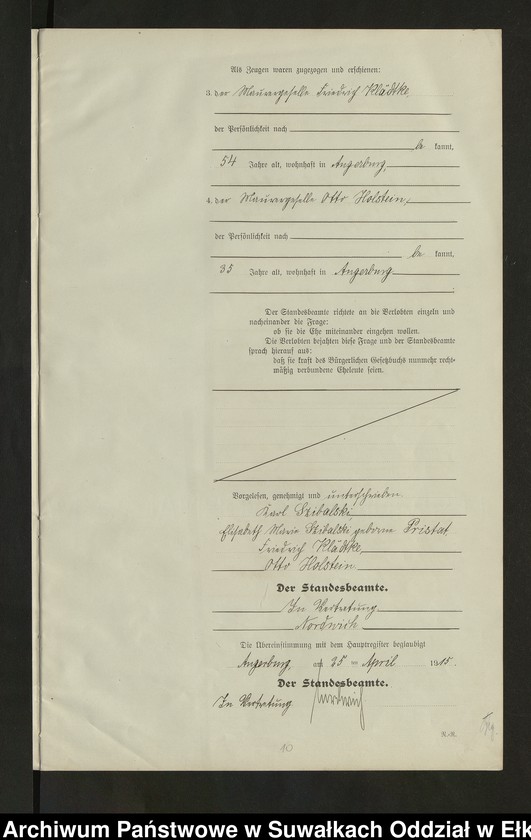 Als Zeugen waren zugezogen und erschienen:
3. der Maurergeselle Friedrich Klädtke,
der Persönlichkeit nach
be kannt,
54 Jahre alt, wohnhaft in Angerburg,
4. der Maurergeselle Otto Holstein,
der Persönlichkeit nach
be kannt,
35 Jahre alt, wohnhaft in Angerburg
Der Standesbeamte richtete an die Verlobten einzeln und
nacheinander die Frage:
ob sie die Ehe miteinander eingehen wollen.
Die Verlobten bejahten diese Frage und der Standesbeamte
sprach hierauf aus:
daß sie kraft des Bürgerlichen Gesetzbuchs nunmehr recht-
mäßig verbundene Eheleute seien.
Vorgelesen, genehmigt und unterschrieben
Karl Szibalski,
Elisabeth Marie Szibalski geborene Pristat
Friedrich Klädtke
Otto Holstein
Der Standesbeamte.
In Vertretung
Nordwich
Die Übereinstimmung mit dem Hauptregister beglaubigt
Angerburg, am 25 ten April 1915.
Der Standesbeamte.
In Vertretung Nordwich
10
Archiwum Państwowe w Suwałkach Oddział w Ełk